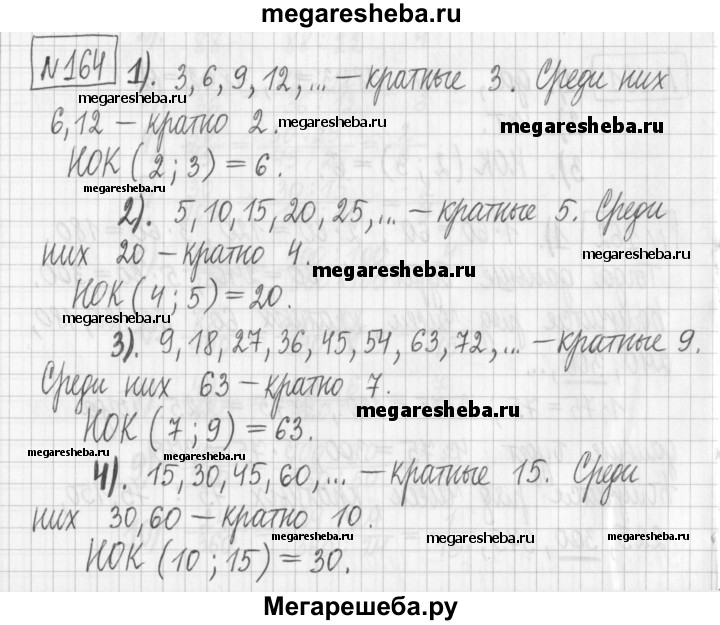 megaresheba.ru
№164 1). 3, 6, 9, 12, ... – кратные 3. Среди них
megaresheba.ru
6, 12 – кратно 2. megaresheba.ru megaresheba.ru
НОК (2; 3) = 6.
megaresheba.ru
2). 5, 10, 15, 20, 25, ... – кратные 5. Среди
них 20 – кратно 4.
megaresheba.ru megaresheba.ru
НОК (4; 5) = 20.
megaresheba.ru
3). 9, 18, 27, 36, 45, 54, 63, 72, ... – кратные 9.
Среди них 63 – кратно 7.
megaresheba.ru
НОК (7; 9) = 63.
megaresheba.ru megaresheba.ru
4). 15, 30, 45, 60, ... – кратные 15. Среди
них 30, 60 – кратно 10.
megaresheba.ru megaresheba.ru megaresheba.ru
НОК (10; 15) = 30.
Мегарешеба.ру